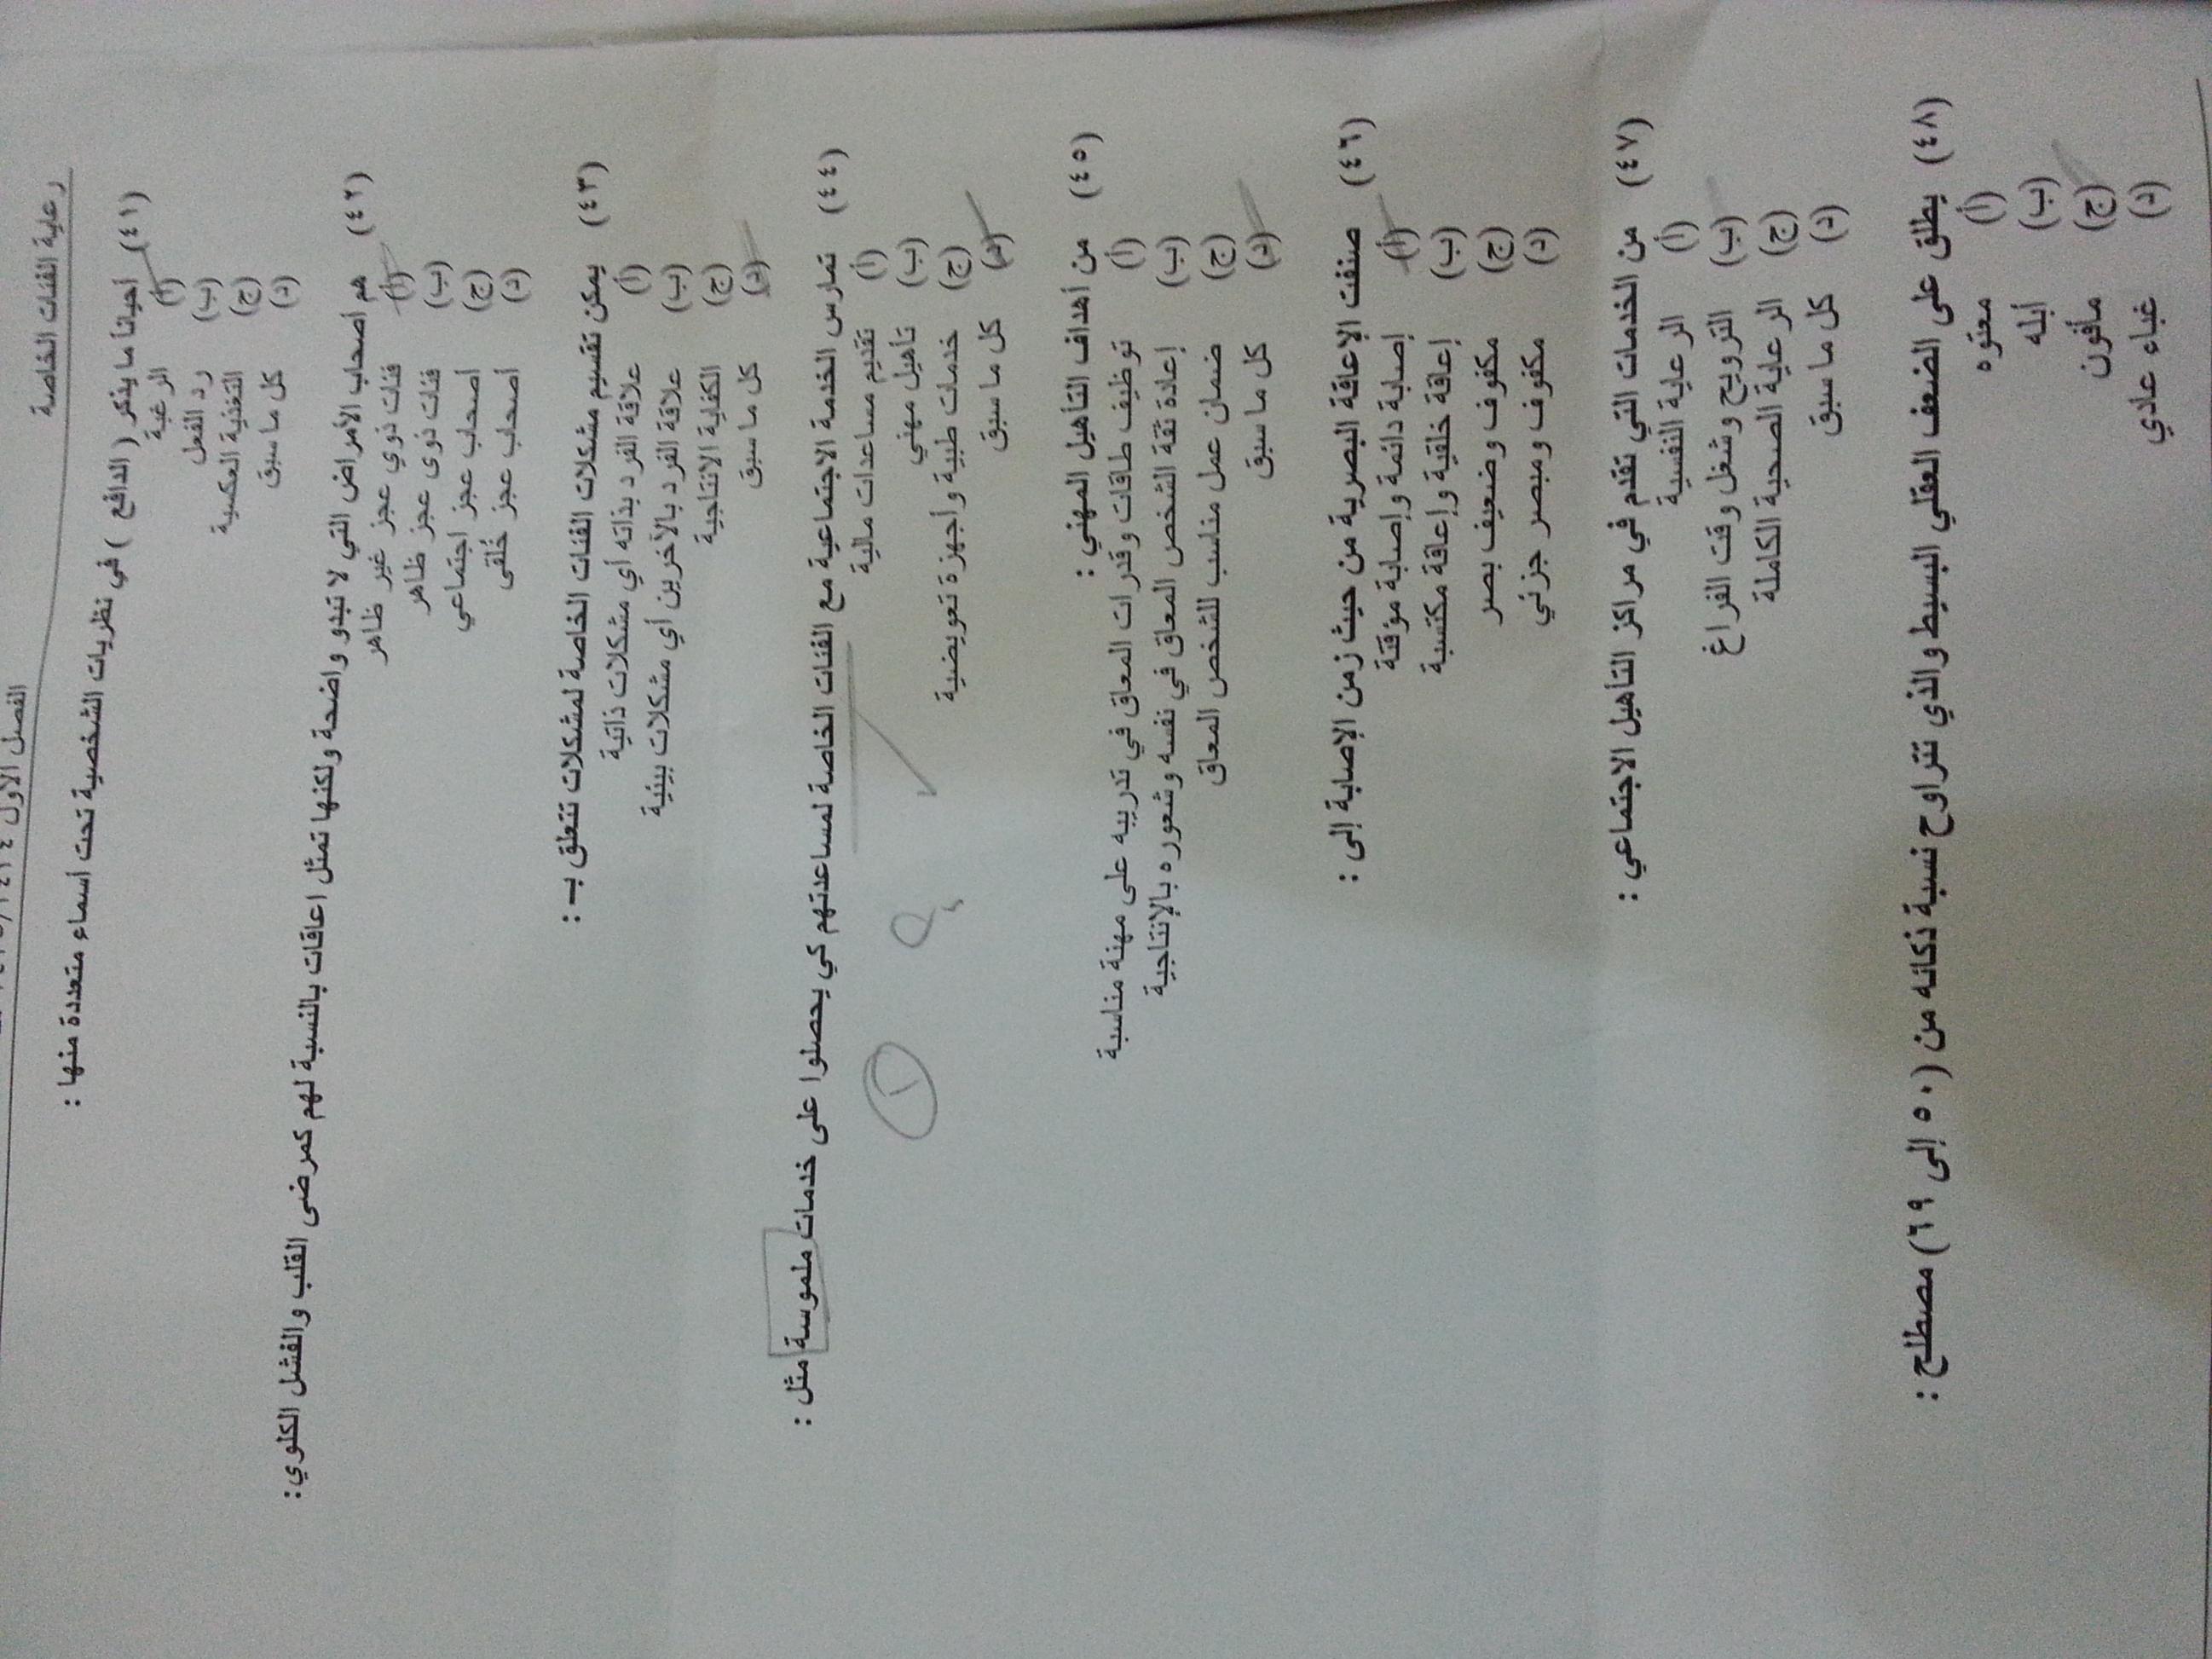 الفصل الأول
رعاية الفئات الخاصة
(٤١) أحياناً ما يذكر ( الدافع ) في نظريات الشخصية تحت أسماء متعددة منها :
(أ) الرغبة
(ب) رد الفعل
(ج) التغذية العكسية
(د) كل ما سبق
(٤٢) هم أصحاب الأمراض التي لا تبدو واضحة ولكنها تمثل اعاقات بالنسبة لهم كمرضى القلب والفشل الكلوي:
(أ) فئات ذوي عجز غير ظاهر
(ب) فئات ذوى عجز ظاهر
(ج) أصحاب عجز اجتماعي
(د) أصحاب عجز خُلقى
(٤٣) يمكن تقسيم مشكلات الفئات الخاصة لمشكلات تتعلق بـ :
(أ) علاقة الفرد بذاته أي مشكلات ذاتية
(ب) علاقة الفرد بالآخرين أي مشكلات بيئية
(ج) الكفاية الانتاجية
(د) كل ما سبق
(٤٤) تمارس الخدمة الاجتماعية مع الفئات الخاصة لمساعدتهم كي يحصلوا على خدمات ملموسة مثل :
(أ) تقديم مساعدات مالية
(ب) تأهيل مهني
(ج) خدمات طبية وأجهزة تعويضية
(د) كل ما سبق
(٤٥) من أهداف التأهيل المهني :
(أ) توظيف طاقات وقدرات المعاق في تدريبه على مهنة مناسبة
(ب) إعادة ثقة الشخص المعاق في نفسه وشعوره بالإنتاجية
(ج) ضمان عمل مناسب للشخص المعاق
(د) كل ما سبق
(٤٦) صنفت الإعاقة البصرية من حيث زمن الإصابة إلى :
(أ) إصابة دائمة وإصابة مؤقتة
(ب) إعاقة خلقية وإعاقة مكتسبة
(ج) مكفوف وضعيف بصر
(د) مكفوف ومبصر جزئي
(٤٧) من الخدمات التي تقدم في مراكز التأهيل الاجتماعي :
(أ) الرعاية النفسية
(ب) الترويح وشغل وقت الفراغ
(ج) الرعاية الصحية الكاملة
(د) كل ما سبق
(٤٨) يطلق على الضعف العقلي البسيط والذي تتراوح نسبة ذكائه من (٥٠ إلى ٦٩) مصطلح :
(أ) معتوه
(ب) أبله
(ج) مأفون
(د) غباء عادي